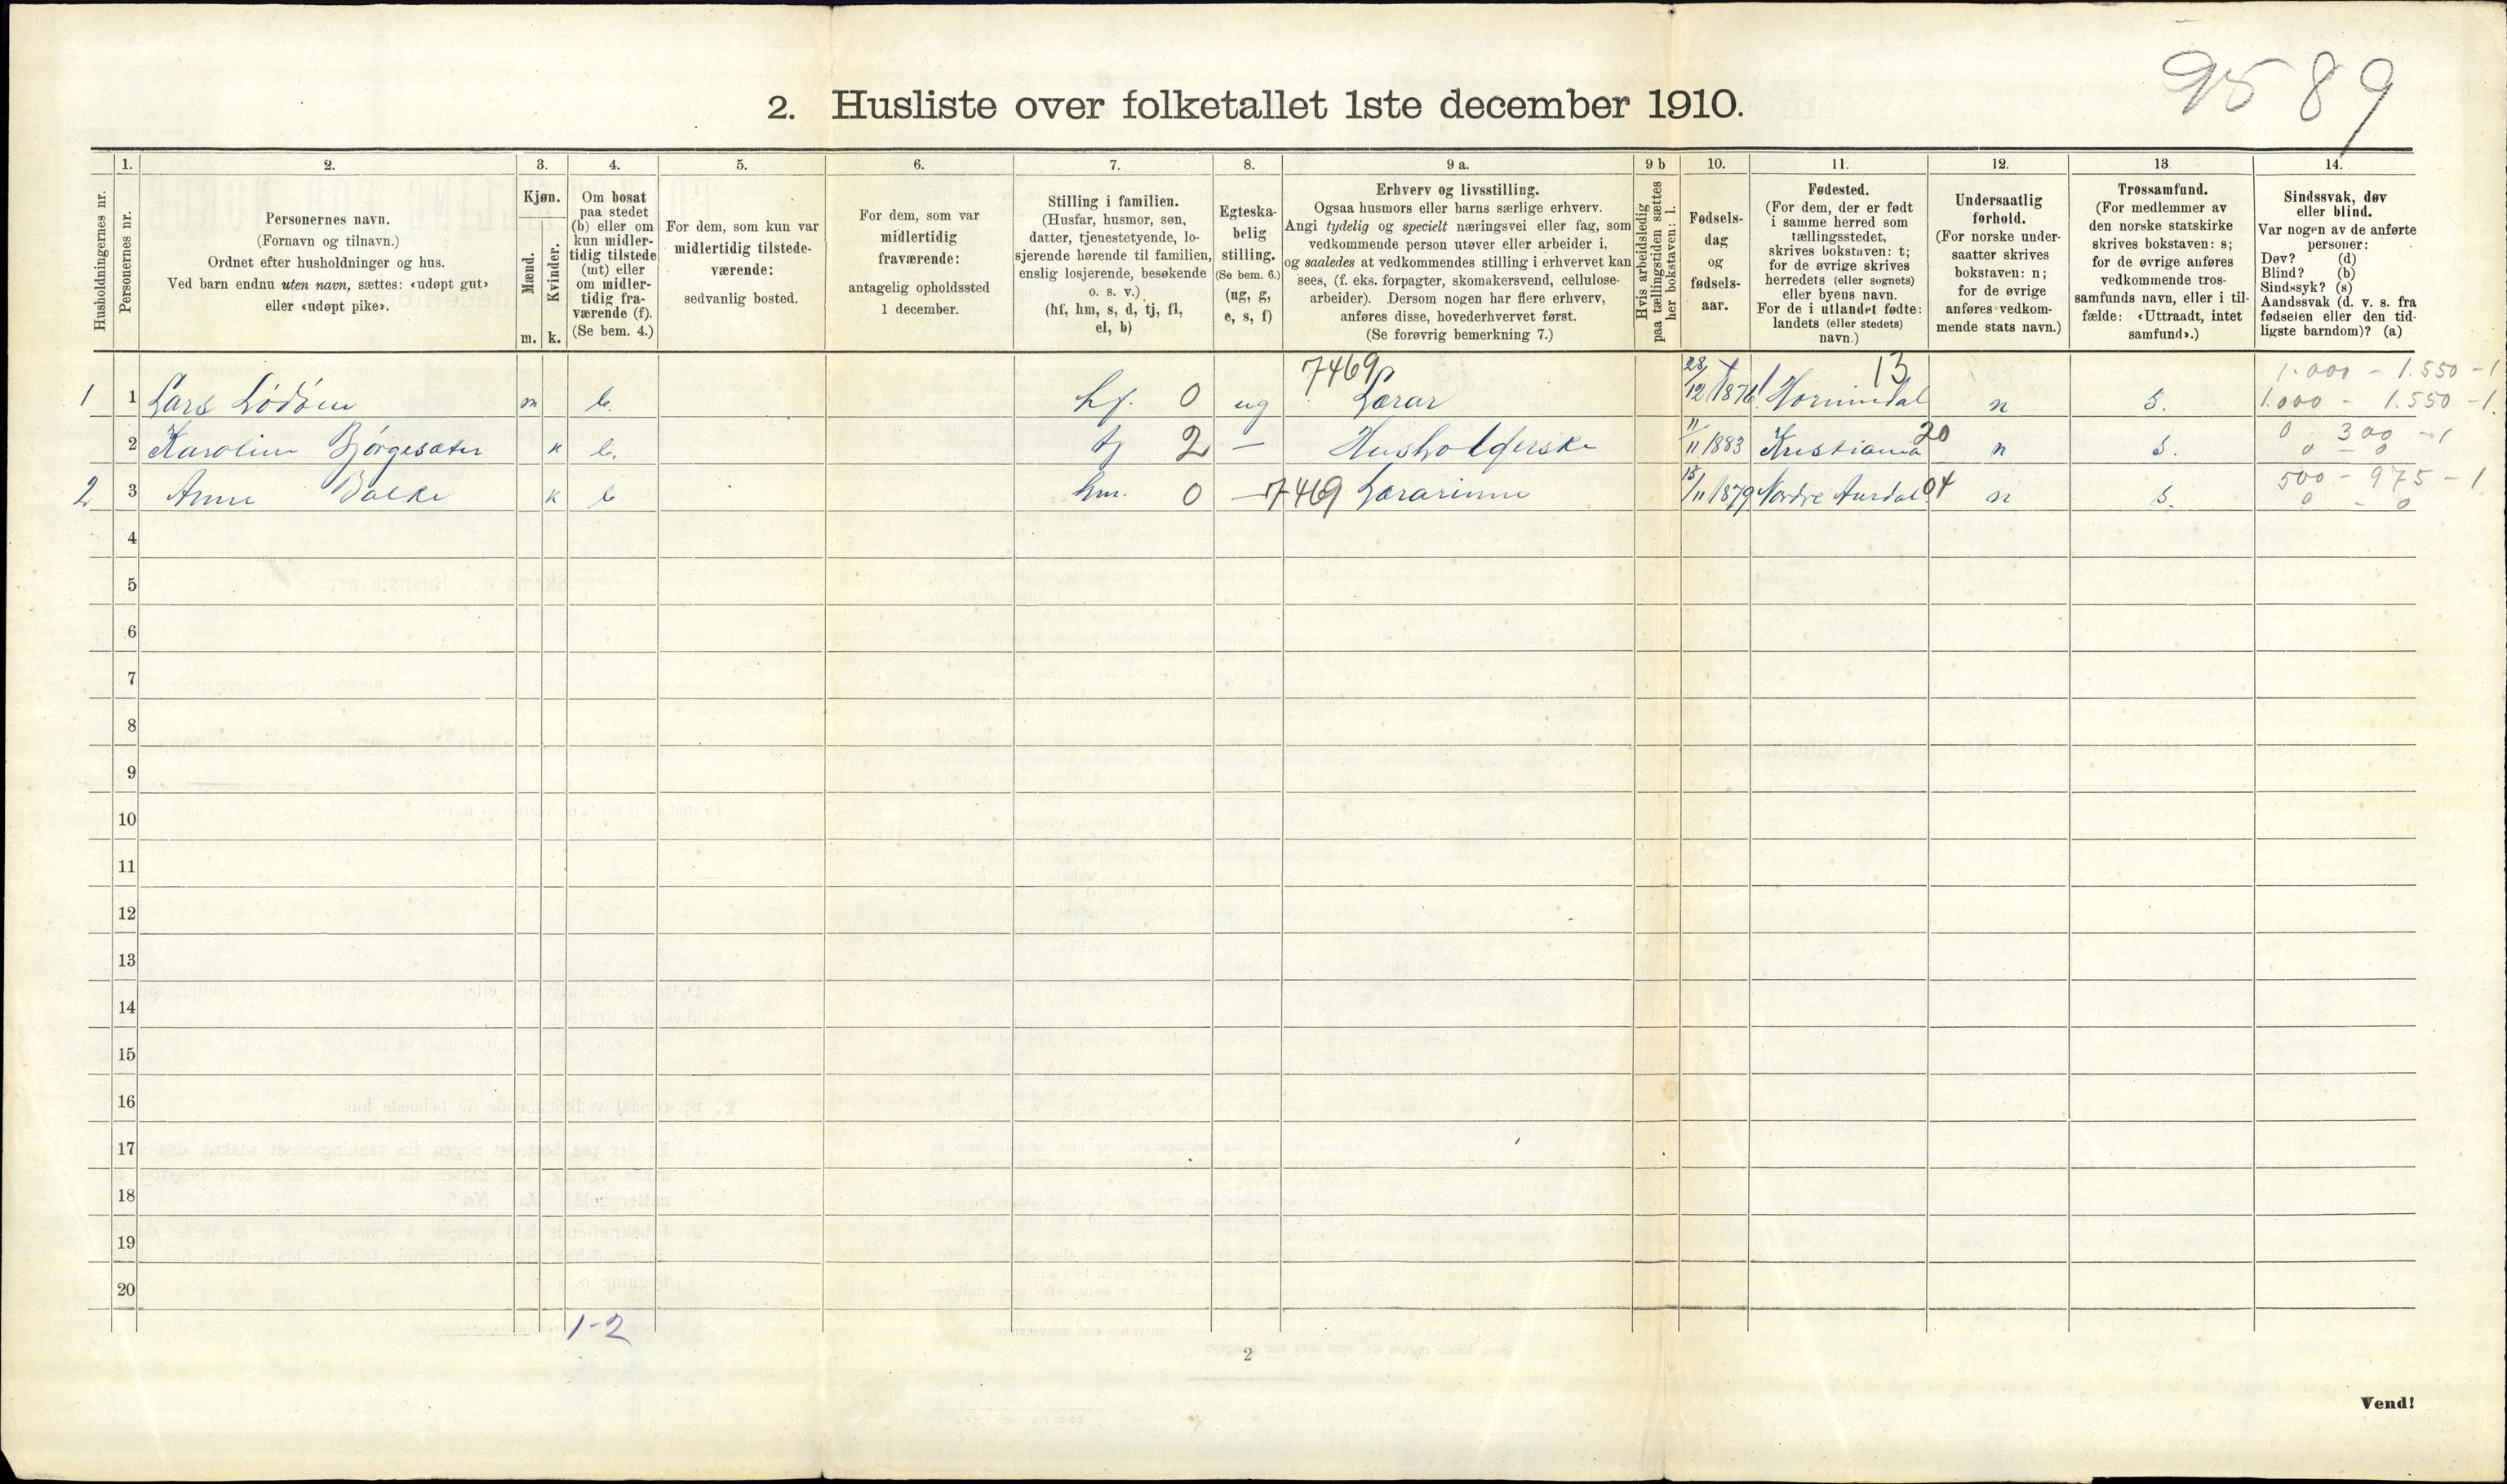 9589
2. Husliste over folketallet 1ste december 1910.
Husholdningernes nr.
1.
Personernes nr.
2.
Personernes navn.
(Fornavn og tilnavn.)
Ordnet efter husholdninger og hus.
Ved barn endnu uten navn, sættes: «udøpt gut»
eller «udøpt pike».
3.
Kjøn.
Mænd.
m.
Kvinder.
k.
4.
Om bosat
paa stedet
(b) eller om
kun midler-
tidig tilstede
(mt) eller
om midler-
tidig fra-
værende (f).
(Se bem. 4.)
5.
For dem, som kun var
midlertidig tilstede-
værende:
sedvanlig bosted.
6.
For dem, som var
midlertidig
fraværende:
antagelig opholdssted
1 december.
7.
Stilling i familien.
(Husfar, husmor, søn,
datter, tjenestetyende, lo-
sjerende hørende til familien,
enslig losjerende, besøkende
o. s. v.)
(hf, hm, s, d, tj, fl,
el, b)
8.
Egteska-
belig
stilling.
(Se bem. 6.)
(ug, g,
e, s, f)
9 a.
Erhverv og livsstilling.
Ogsaa husmors eller barns særlige erhverv.
Angi tydelig og specielt næringsvei eller fag, som
vedkommende person utøver eller arbeider i,
og saaledes at vedkommendes stilling i erhvervet kan
sees, (f. eks. forpagter, skomakersvend, cellulose-
arbeider). Dersom nogen har flere erhverv,
anføres disse, hovederhvervet først.
(Se forøvrig bemerkning 7.)
9 b
Hvis arbeidsledig
paa tællingstiden sættes
her bokstaven: l.
10.
Fødsels-
dag
og
fødsels-
aar.
11.
Fødested.
(For dem, der er født
i samme herred som
tællingsstedet,
skrives bokstaven: t;
for de øvrige skrives
herredets (eller sognets)
eller byens navn.
For de i utlandet fødte:
landets (eller stedets)
navn.)
12.
Undersaatlig
forhold.
(For norske under-
saatter skrives
bokstaven: n;
for de øvrige
anføres vedkom-
mende stats navn.)
13.
Trossamfund.
(For medlemmer av
den norske statskirke
skrives bokstaven: s;
for de øvrige anføres
vedkommende tros-
samfunds navn, eller i til-
fælde: «Uttraadt, intet
samfund».)
14.
Sindssvak, døv
eller blind.
Var nogen av de anførte
personer:
Døv? (d)
Blind? (b)
Sindssyk? (s)
Aandssvak (d. v. s. fra
fødselen eller den tid-
ligste barndom)? (a)
7469 13 1.000 - 1.550 - 1
1 1 Lars Lödöen m b. hf. 0 ug Lærar 28/12 1876 Hornindal n s. 1.000 - 1.550 - 1.
20 0 - 300 - 1
2 Karolin Bjørgesæter k b. tj 2 — Husholderske 11/11 1883 Kristiania n s. 0 - 0
500 - 975 - 1
2 3 Anne Bakke k b hm. 0 — 7469 Lærarinne 15/11 1879 Nordre Aurdal 04 n s. 0 - 0
4
5
6
7
8
9
10
11
12
13
14
15
16
17
18
19
20
1-2
2
Vend!